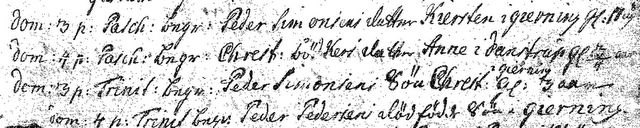 Dom: 3 p: Pasch: begr: Peder Simonsens datter Kiersten i Gierning gl:
Dom: 4 p: Pasch: begr: Christ: datter Anne i Danstrup gl: 3/4 aar
Dom: 3 p: Trinit: begr: Peder Simonsens Søn Christ: i Gierning gl: 3 aar
Dom: 4 p: Trinit begr: Peder Pedersens dødfødt Søn i Gierning